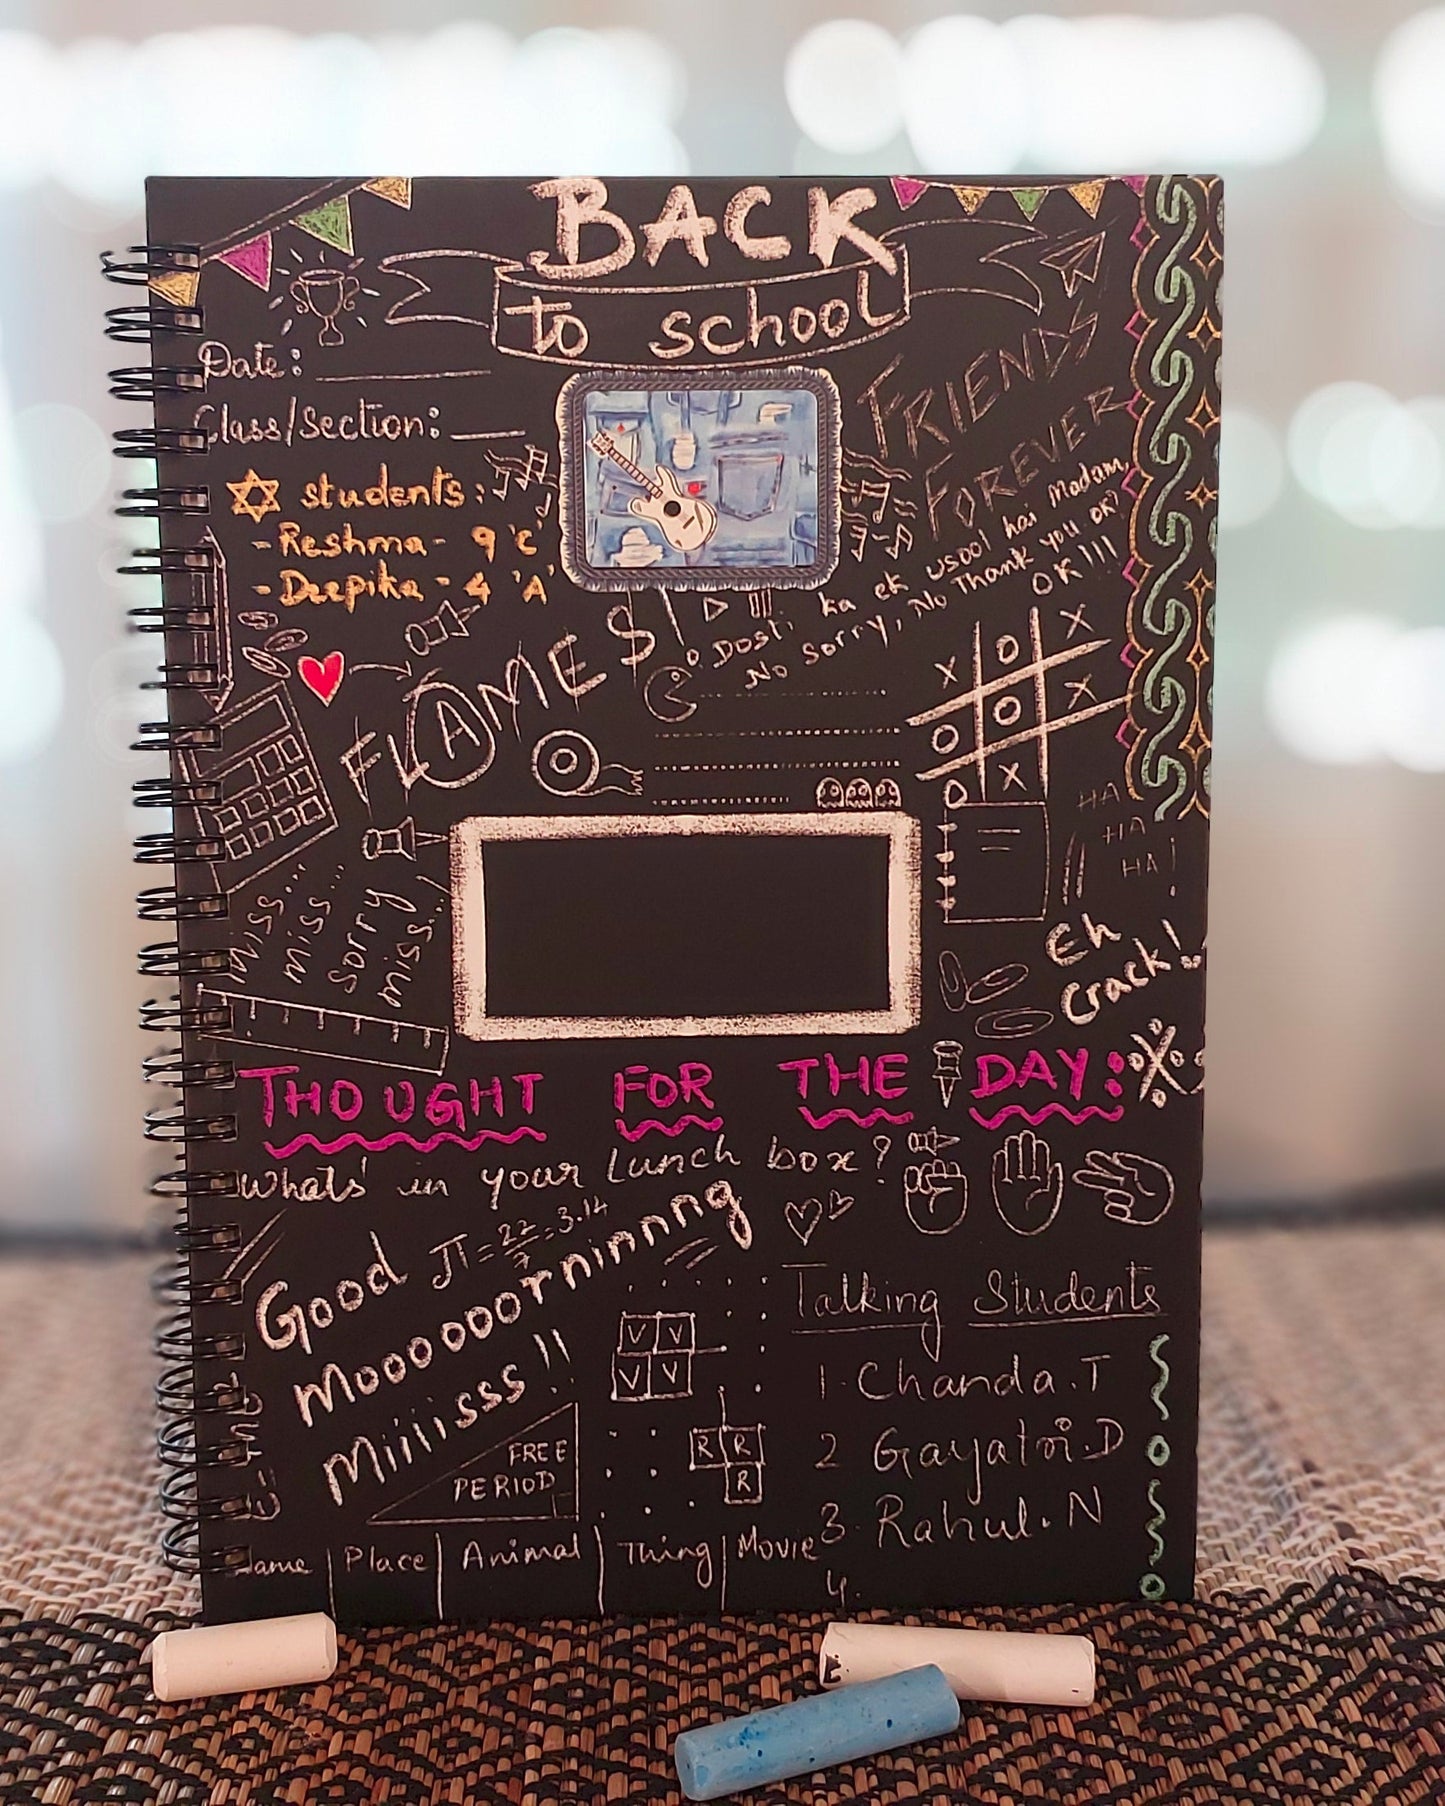 BACK
to school
Date:
Class/Section:
students:
- Reshma - 9 'C'
- Deepika - 4 'A'
FRIENDS
FOREVER
Dosti ka ek usool hai Madam,
No Sorry, No Thank you OK?
OK!!!
FLAMES!
X O X
O O X
O X
HA
HA
HA!
Miss....
miss...
sorry
miss....!
Eh
Crack!
THOUGHT FOR THE DAY:
What's' in your Lunch box?
π = 22/7 = 3.14
Good
Moooooorninnnng
Miiiisss!!
V V
V V
R R
R
FREE
PERIOD
E=mc2
Talking Students
1. Chanda.T
2 Gayatri.D
3. Rahul.N
4.
Name | Place | Animal | Thing | Movie